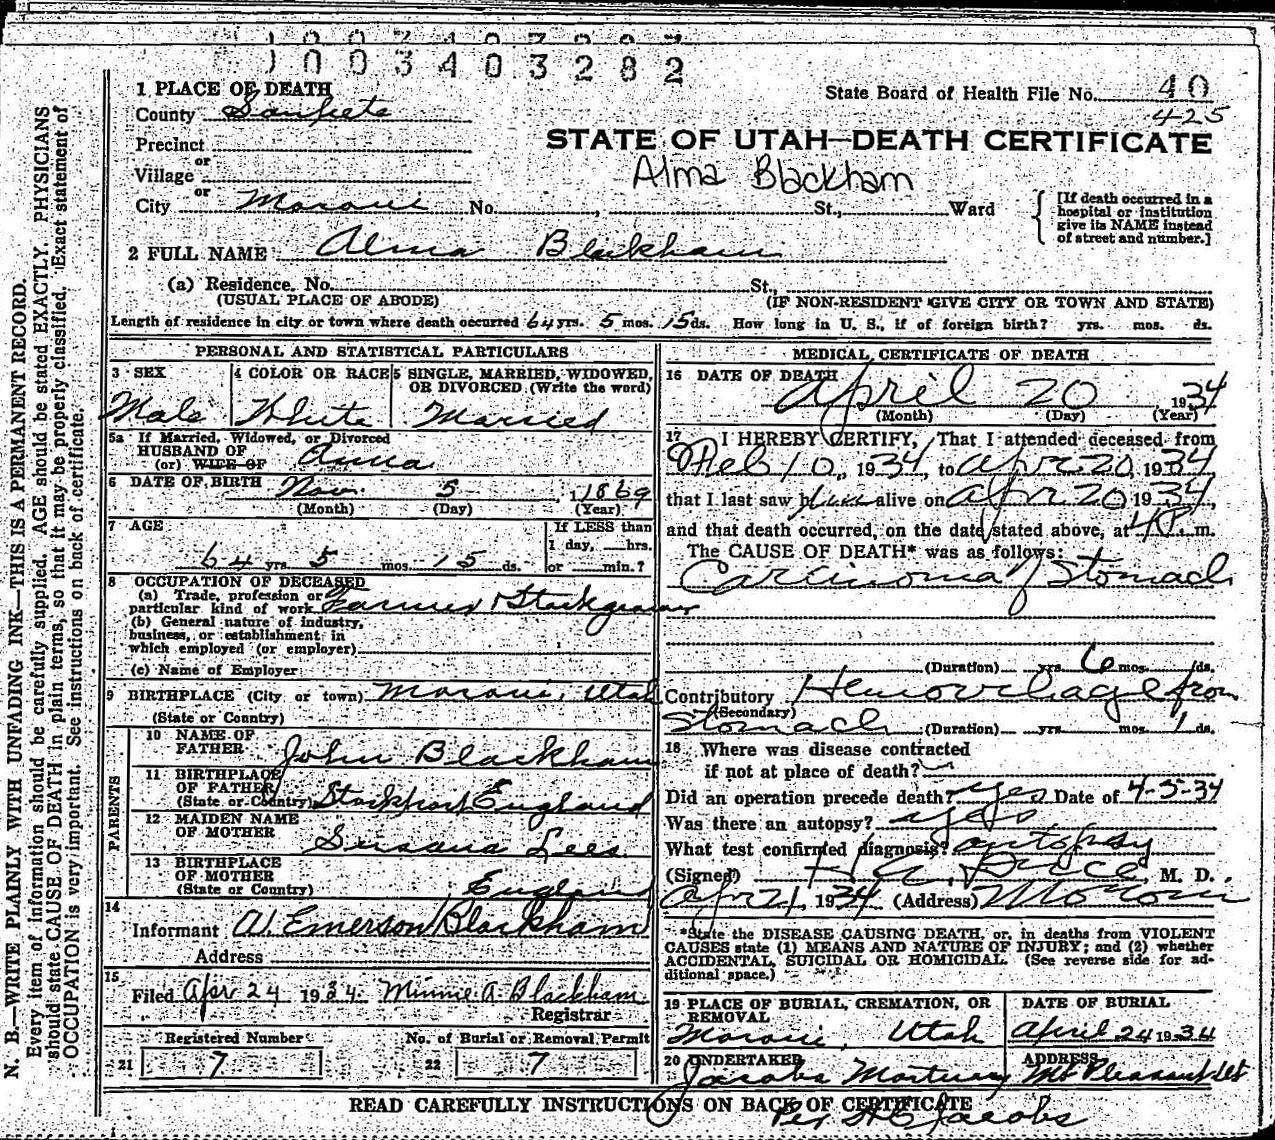 1003403282
1 PLACE OF DEATH
County Sanpete
State Board of Health File No. 40
425
Precinct
or
Village
or
City Moroni No. , St., Ward
STATE OF UTAH—DEATH CERTIFICATE
Alma Blackham
[If death occurred in a
hospital or institution
give its NAME instead
of street and number.]
2 FULL NAME Alma Blackham
(a) Residence. No. St.,
(USUAL PLACE OF ABODE) (IF NON-RESIDENT GIVE CITY OR TOWN AND STATE)
Length of residence in city or town where death occurred 64 yrs. 5 mos. 15 ds. How long in U. S., if of foreign birth? yrs. mos. ds.
PERSONAL AND STATISTICAL PARTICULARS
3 SEX
Male
4 COLOR OR RACE
White
5 SINGLE, MARRIED, WIDOWED,
OR DIVORCED (Write the word)
Married
5a If Married, Widowed, or Divorced
HUSBAND OF
(or) WIFE OF Anna
6 DATE OF BIRTH Nov. 5, 1869
(Month) (Day) (Year)
7 AGE
64 yrs. 5 mos. 15 ds.
If LESS than
1 day, hrs.
or min.?
8 OCCUPATION OF DECEASED
(a) Trade, profession or
particular kind of work Farmer
(b) General nature of industry,
business, or establishment in
which employed (or employer)
(c) Name of Employer
9 BIRTHPLACE (City or town) Moroni, Utah
(State or Country)
PARENTS
10 NAME OF
FATHER John Blackham
11 BIRTHPLACE
OF FATHER
(State or Country) Stockport England
12 MAIDEN NAME
OF MOTHER Susana Lees
13 BIRTHPLACE
OF MOTHER
(State or Country) England
14
Informant A. Emerson Blackham
Address
15
Filed Apr 24 1934 Minnie A. Blackham
Registrar
Registered Number
21 7
No. of Burial or Removal Permit
22 7
MEDICAL CERTIFICATE OF DEATH
16 DATE OF DEATH
April 20 1934
(Month) (Day) (Year)
17 I HEREBY CERTIFY, That I attended deceased from
Feb 10, 1934, to Apr 20, 1934
that I last saw him alive on Apr 20 1934,
and that death occurred, on the date stated above, at 4 P. m.
The CAUSE OF DEATH* was as follows:
Carcinoma of Stomach
(Duration) yrs. 6 mos. ds.
Contributory Hemorrhage from
(Secondary)
Stomach (Duration) yrs. mos. 1 ds.
18 Where was disease contracted
if not at place of death?
Did an operation precede death? yes Date of 4-5-34
Was there an autopsy? yes
What test confirmed diagnosis? autopsy
(Signed) H. A. Dice, M. D.
Apr 21, 1934 (Address) Moroni
*State the DISEASE CAUSING DEATH, or, in deaths from VIOLENT
CAUSES state (1) MEANS AND NATURE OF INJURY; and (2) whether
ACCIDENTAL, SUICIDAL OR HOMICIDAL. (See reverse side for ad-
ditional space.)
19 PLACE OF BURIAL, CREMATION, OR
REMOVAL
Moroni, Utah
DATE OF BURIAL
April 24 1934
20 UNDERTAKER
Jacobs Mortuary
ADDRESS
Mt Pleasant Ut
Per Jacobs
READ CAREFULLY INSTRUCTIONS ON BACK OF CERTIFICATE
N. B.—WRITE PLAINLY WITH UNFADING INK—THIS IS A PERMANENT RECORD.
Every item of information should be carefully supplied. AGE should be stated EXACTLY. PHYSICIANS
should state CAUSE OF DEATH in plain terms, so that it may be properly classified. Exact statement of
OCCUPATION is very important. See instructions on back of certificate.